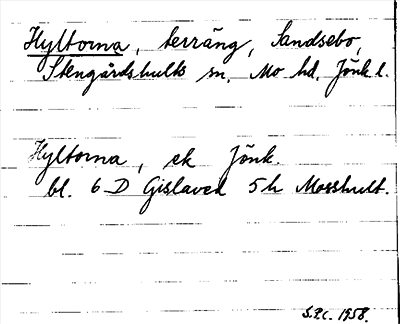 Hyltorna, terräng, Sandsebo,
Stengårdshults sn. Mo hd. Jönk. l.
Hyltorna, ek Jönk.
bl. 6 D Gislaved 5 h Mosshult.
1958.